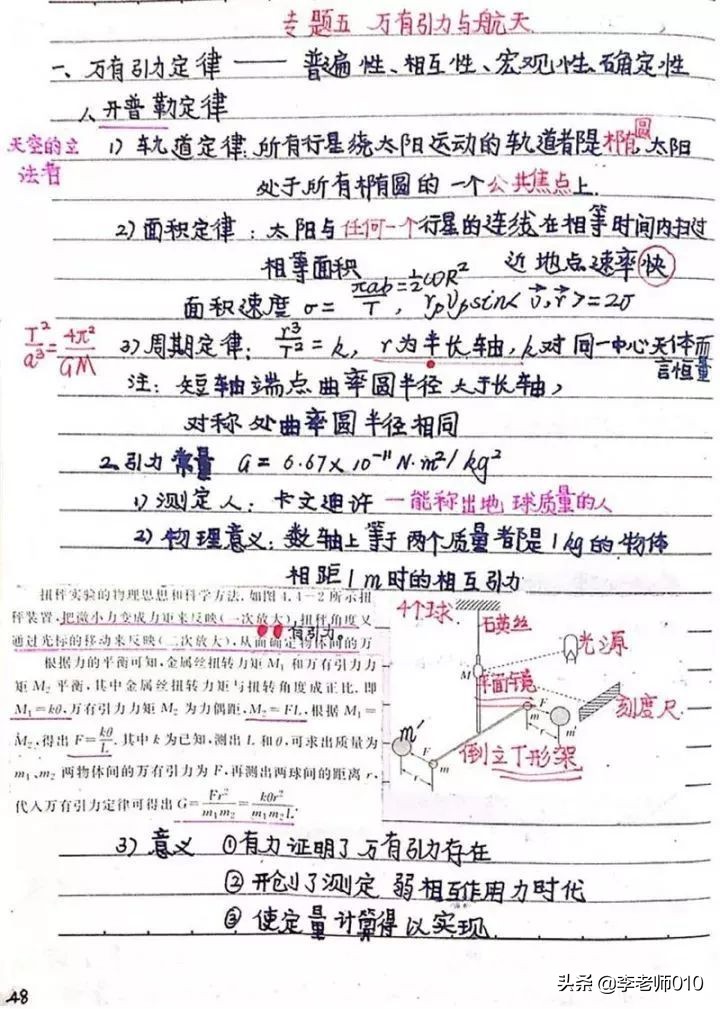 专题五 万有引力与航天
一、万有引力定律 —— 普遍性、相互性、宏观性、确定性
1、开普勒定律
天空的立法者
1) 轨道定律:所有行星绕太阳运动的轨道都是椭圆,太阳
处于所有椭圆的一个公共焦点上.
2) 面积定律:太阳与任何一个行星的连线在相等时间内扫过
相等面积 近地点速率快
面积速度 σ= πab/T = ½ωR², r_p v_p sin<v⃗,r⃗>=2σ
T²/a³ = 4π²/GM
3) 周期定律: r³/T² = k, r为半长轴,k对同一中心天体而
言恒量
注:短轴端点曲率圆半径大于长轴,
对称处曲率圆半径相同
2、引力常量 G = 6.67×10⁻¹¹ N·m²/kg²
1) 测定人:卡文迪许 —能称出地球质量的人
2) 物理意义:数轴上等于两个质量都是1kg的物体
相距1m时的相互引力
扭秤实验的物理思想和科学方法.如图4.4-2所示扭
秤装置,把微小力变成力矩来反映(一次放大),扭秤角度又
通过光标的移动来反映(二次放大),从而确定物体间的万
有引力。
根据力的平衡可知,金属丝扭转力矩M₁和万有引力力
矩M₂平衡,其中金属丝扭转力矩与扭转角度成正比,即
M₁=kθ,万有引力力矩M₂为力偶距,M₂=FL,根据M₁=
M₂,得出F=kθ/L.其中k为已知,测出L和θ,可求出质量为
m₁、m₂两物体间的万有引力为F,再测出两球间的距离r,
代入万有引力定律可得出G=Fr²/m₁m₂=kθr²/m₁m₂L.
4个球
石英丝
光源
M
平面镜
刻度尺
m′
F
m
r
F
m
r
倒立丁形架
3) 意义 ①有力证明了万有引力存在
②开创了测定弱相互作用力时代
③使定量计算得以实现
48
头条 @李老师010